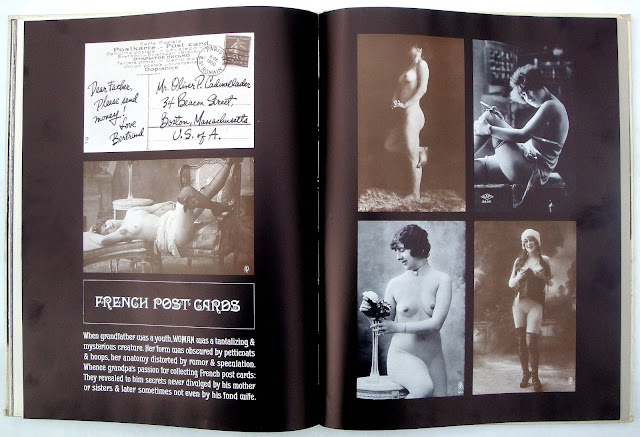 Carte Postale
Postkarte - Post card
Dopisnice
Dear Father,
Please send
money!
Love
Bertrand
Mr. Oliver P. Cadwallader
34 Beacon Street,
Boston, Massachusetts
U.S. of A.
FRENCH POST CARDS
When grandfather was a youth, WOMAN was a tantalizing &
mysterious creature. Her form was obscured by petticoats
& hoops, her anatomy distorted by rumor & speculation.
Whence grandpa's passion for collecting French post cards:
They revealed to him secrets never divulged by his mother
or sisters & later sometimes not even by his fond wife.